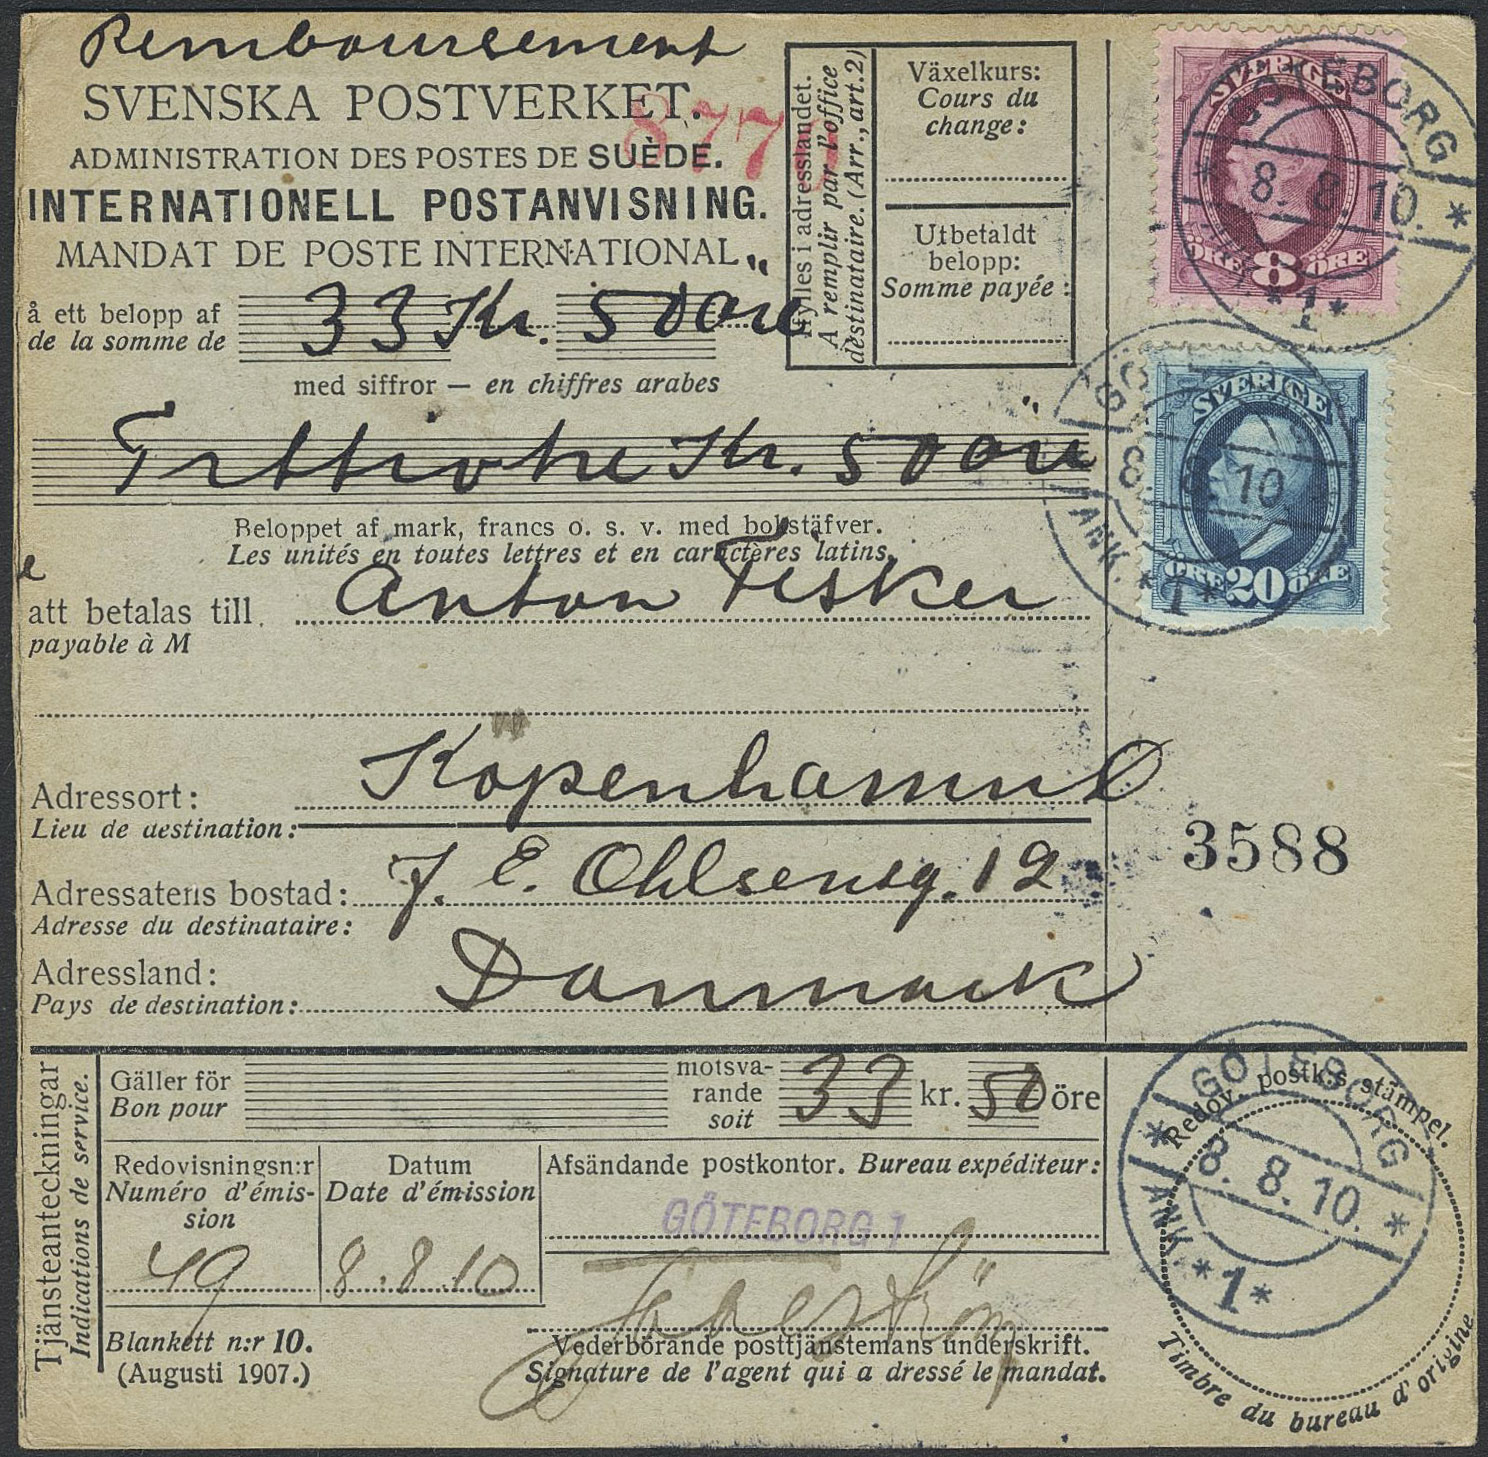 Remboursement
SVENSKA POSTVERKET.
877
ADMINISTRATION DES POSTES DE SUÈDE.
INTERNATIONELL POSTANVISNING.
MANDAT DE POSTE INTERNATIONAL
å ett belopp af
de la somme de
33 Kr. 50 öre
med siffror — en chiffres arabes
Ifylles i adresslandet.
A remplir par l'office
destinataire. (Arr., art. 2)
Växelkurs:
Cours du
change:
Utbetaldt
belopp:
Somme payée:
SVERIGE
ÖRE 8 ÖRE
GÖTEBORG
8. 8. 10.
*1*
SVERIGE
ÖRE 20 ÖRE
GÖTEBORG
8. 8. 10
ANK. *1*
Trettiotre Kr. 50 öre
Beloppet af mark, francs o. s. v. med bokstäfver.
Les unités en toutes lettres et en caractères latins.
att betalas till Anton Fisker
payable à M
Adressort: Köpenhamn
Lieu de destination:
3588
Adressatens bostad: J. E. Ohlsensg. 12
Adresse du destinataire:
Adressland: Danmark
Pays de destination:
Tjänsteanteckningar
Indications de service.
Gäller för
Bon pour
motsva-
rande
soit
33 kr. 50 öre
Redovisningsn:r
Numéro d'émis-
sion
49
Datum
Date d'émission
8.8.10
Afsändande postkontor. Bureau expéditeur:
GÖTEBORG 1
Redov. postk:s stämpel.
GÖTEBORG
8. 8. 10.
ANK. *1*
Timbre du bureau d'origine
Blankett n:r 10.
(Augusti 1907.)
Vederbörande posttjänstemans underskrift.
Signature de l'agent qui a dressé le mandat.